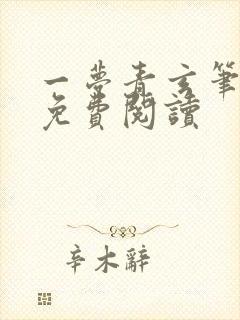 一夢青玄筆
免費閱讀
辛木辭